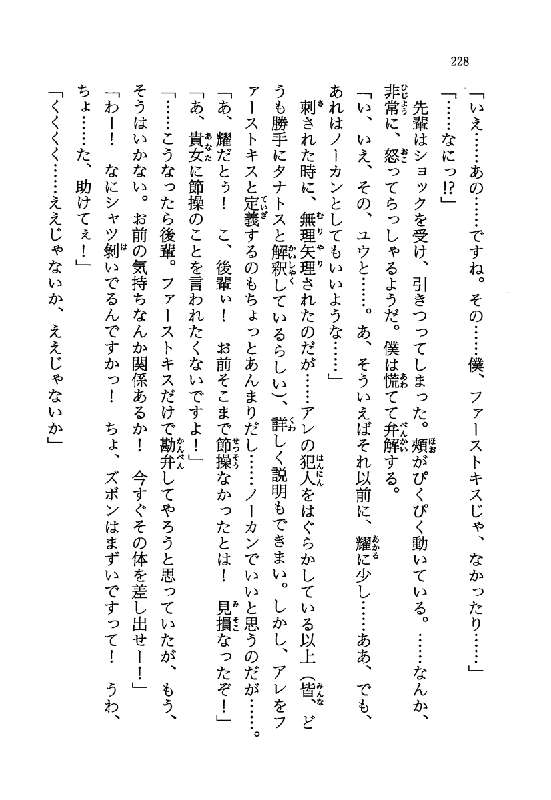 228
「いえ……あの……ですね。その……僕、ファーストキスじゃ、なかったり……」
「……なにっ!?」
　先輩はショックを受け、引きつってしまった。頬がぴくぴく動いている。……なんか、
非常に、怒ってらっしゃるようだ。僕は慌てて弁解する。
「い、いえ、その、ユウと……。あ、そういえばそれ以前に、耀に少し……ああ、でも、
あれはノーカンとしてもいいような……」
　刺された時に、無理矢理されたのだが……アレの犯人をはぐらかしている以上（皆、ど
うも勝手にタナトスと解釈しているらしい）、詳しく説明もできまい。しかし、アレをフ
ァーストキスと定義するのもちょっとあんまりだし……ノーカンでいいと思うのだが……。
「あ、耀だとぅ！　こ、後輩ぃ！　お前そこまで節操なかったとは！　見損なったぞ！」
「あ、貴女に節操のことを言われたくないですよ！」
「……こうなったら後輩。ファーストキスだけで勘弁してやろうと思っていたが、もう、
そうはいかない。お前の気持ちなんか関係あるか！　今すぐその体を差し出せー！」
「わー！　なにシャツ剝いでるんですかっ！　ちょ、ズボンはまずいですって！　うわ、
ちょ……た、助けてぇ！」
「くくくく……ええじゃないか、ええじゃないか」